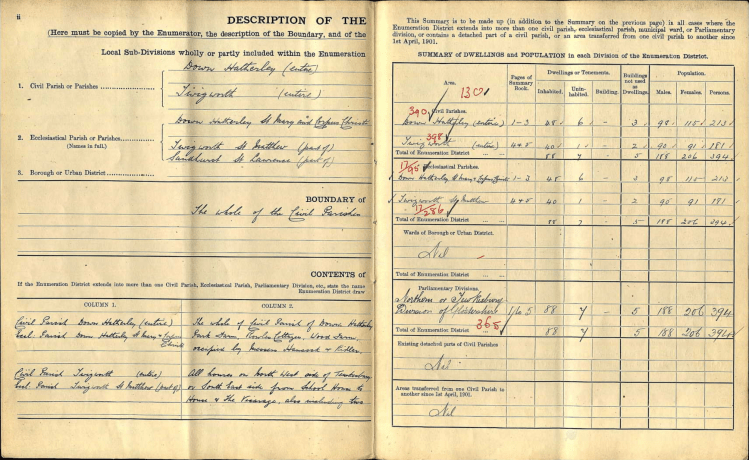 ii
DESCRIPTION OF THE
(Here must be copied by the Enumerator, the description of the Boundary, and of the
Local Sub-Divisions wholly or partly included within the Enumeration
1. Civil Parish or Parishes
Down Hatherley (entire)
Twigworth (entire)
2. Ecclesiastical Parish or Parishes
(Names in full.)
Down Hatherley St Mary and Corpus Christi
Twigworth St Matthew (part of)
Sandhurst St Lawrence (part of)
3. Borough or Urban District
BOUNDARY OF
The whole of the Civil Parishes
CONTENTS OF
If the Enumeration District extends into more than one Civil Parish, Ecclesiastical Parish, Parliamentary Division, etc., state the name
Enumeration District draw
COLUMN 1. COLUMN 2.
Civil Parish Down Hatherley (entire) The whole of Civil Parish of Down Hatherley
Eccl. Parish Down Hatherley St Mary & Corpus Christi Park Farm, Cottages, Wood Farm,
occupied by Messrs Hancock &
Civil Parish Twigworth (entire) All houses on North West side of Tewkesbury
Eccl. Parish Twigworth St Matthew (part of) or South East side from School House to
House & the Vicarage, also including two
This Summary is to be made up (in addition to the Summary on the previous page) in all cases where the
Enumeration District extends into more than one civil parish, ecclesiastical parish, municipal ward, or Parliamentary
division, or contains a detached part of a civil parish, or an area transferred from one civil parish to another since
1st April, 1901.
SUMMARY of DWELLINGS and POPULATION in each Division of the Enumeration District.
Area. Pages of Summary Book. Dwellings or Tenements. Buildings not used as Dwellings. Population.
Inhabited. Uninhabited. Building. Males. Females. Persons.
130
390
Civil Parishes.
Down Hatherley (entire) 1-3 48 6 - 3 98 115 213
398
Twigworth (entire) 4&5 40 1 - 2 90 91 181
Total of Enumeration District 88 7 5 188 206 394
Ecclesiastical Parishes.
Down Hatherley St Mary & Corpus Christi 1-3 48 6 - 3 98 115 213
Twigworth St Matthew 4&5 40 1 - 2 90 91 181
Total of Enumeration District 88 7 5 188 206 394
Wards of Borough or Urban District.
Nil
Total of Enumeration District
Parliamentary Divisions.
Northern or Tewkesbury
Division of Gloucestershire 1 to 5 88 7 - 5 188 206 394
365
Total of Enumeration District 88 7 5 188 206 394
Existing detached parts of Civil Parishes
Nil
Areas transferred from one Civil Parish to
another since 1st April, 1901.
Nil